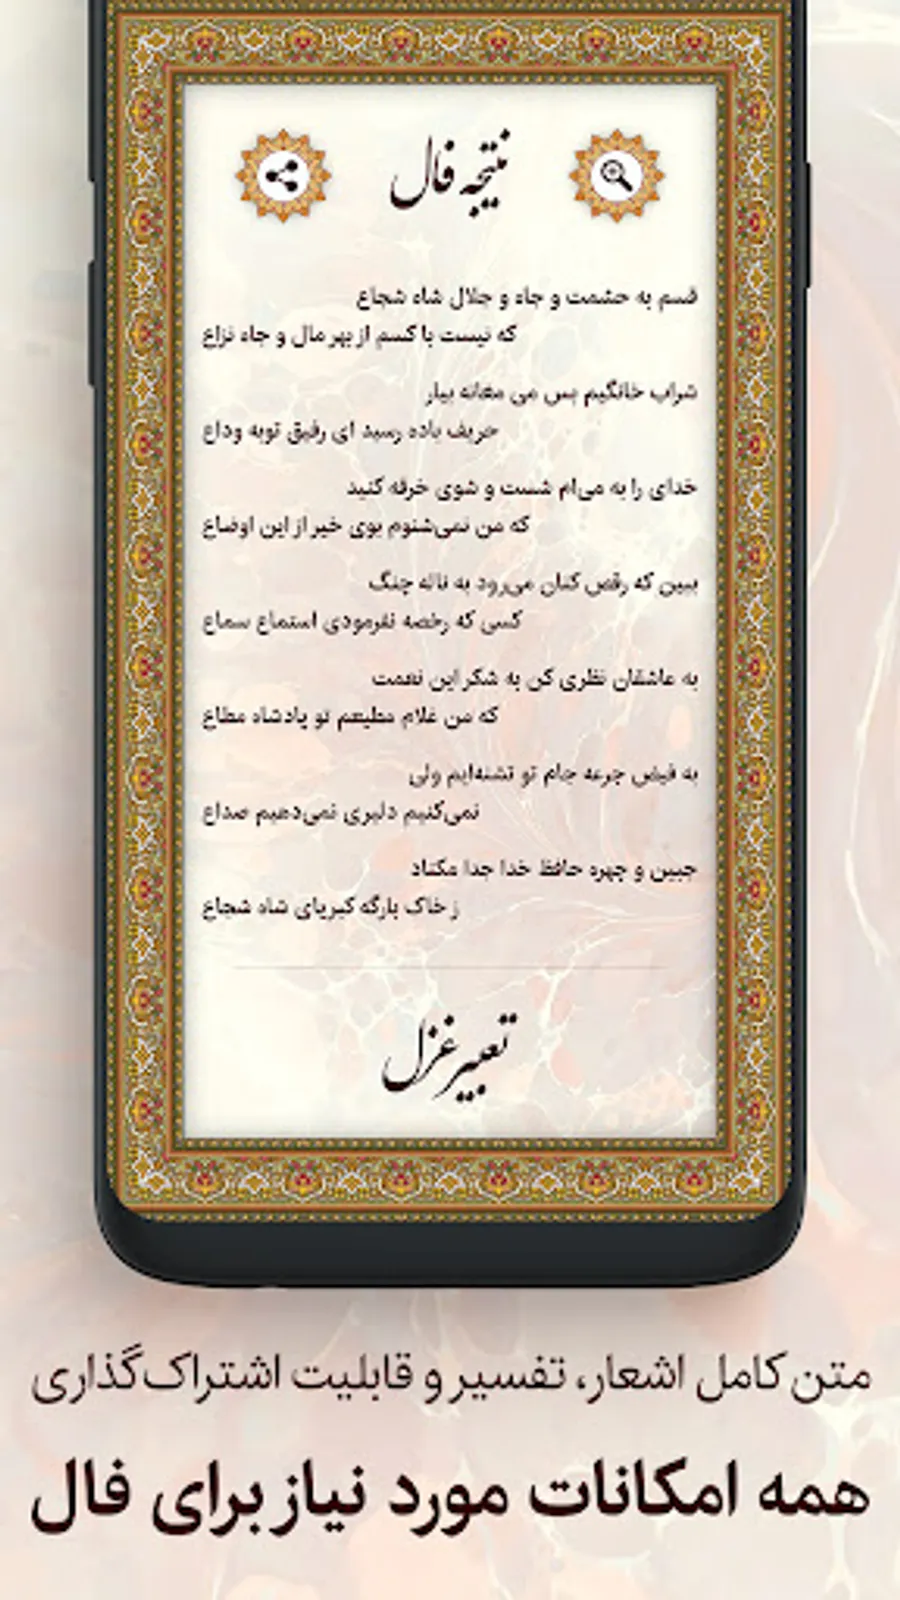 نتیجه فال
قسم به حشمت و جاه و جلال شاه شجاع
که نیست با کسم از بهر مال و جاه نزاع
شراب خانگیم بس می مغانه بیار
حریف باده رسید ای رفیق توبه وداع
خدای را به می‌ام شست و شوی خرقه کنید
که من نمی‌شنوم بوی خیر از این اوضاع
ببین که رقص کنان می‌رود به ناله چنگ
کسی که رخصه نفرمودی استماع سماع
به عاشقان نظری کن به شکر این نعمت
که من غلام مطیعم تو پادشاه مطاع
به فیض جرعه جام تو تشنه‌ایم ولی
نمی‌کنیم دلیری نمی‌دهیم صداع
جبین و چهره حافظ خدا جدا مکناد
ز خاک بارگه کبریای شاه شجاع
تعبیر غزل
متن کامل اشعار، تفسیر و قابلیت اشتراک‌گذاری
همه امکانات مورد نیاز برای فال